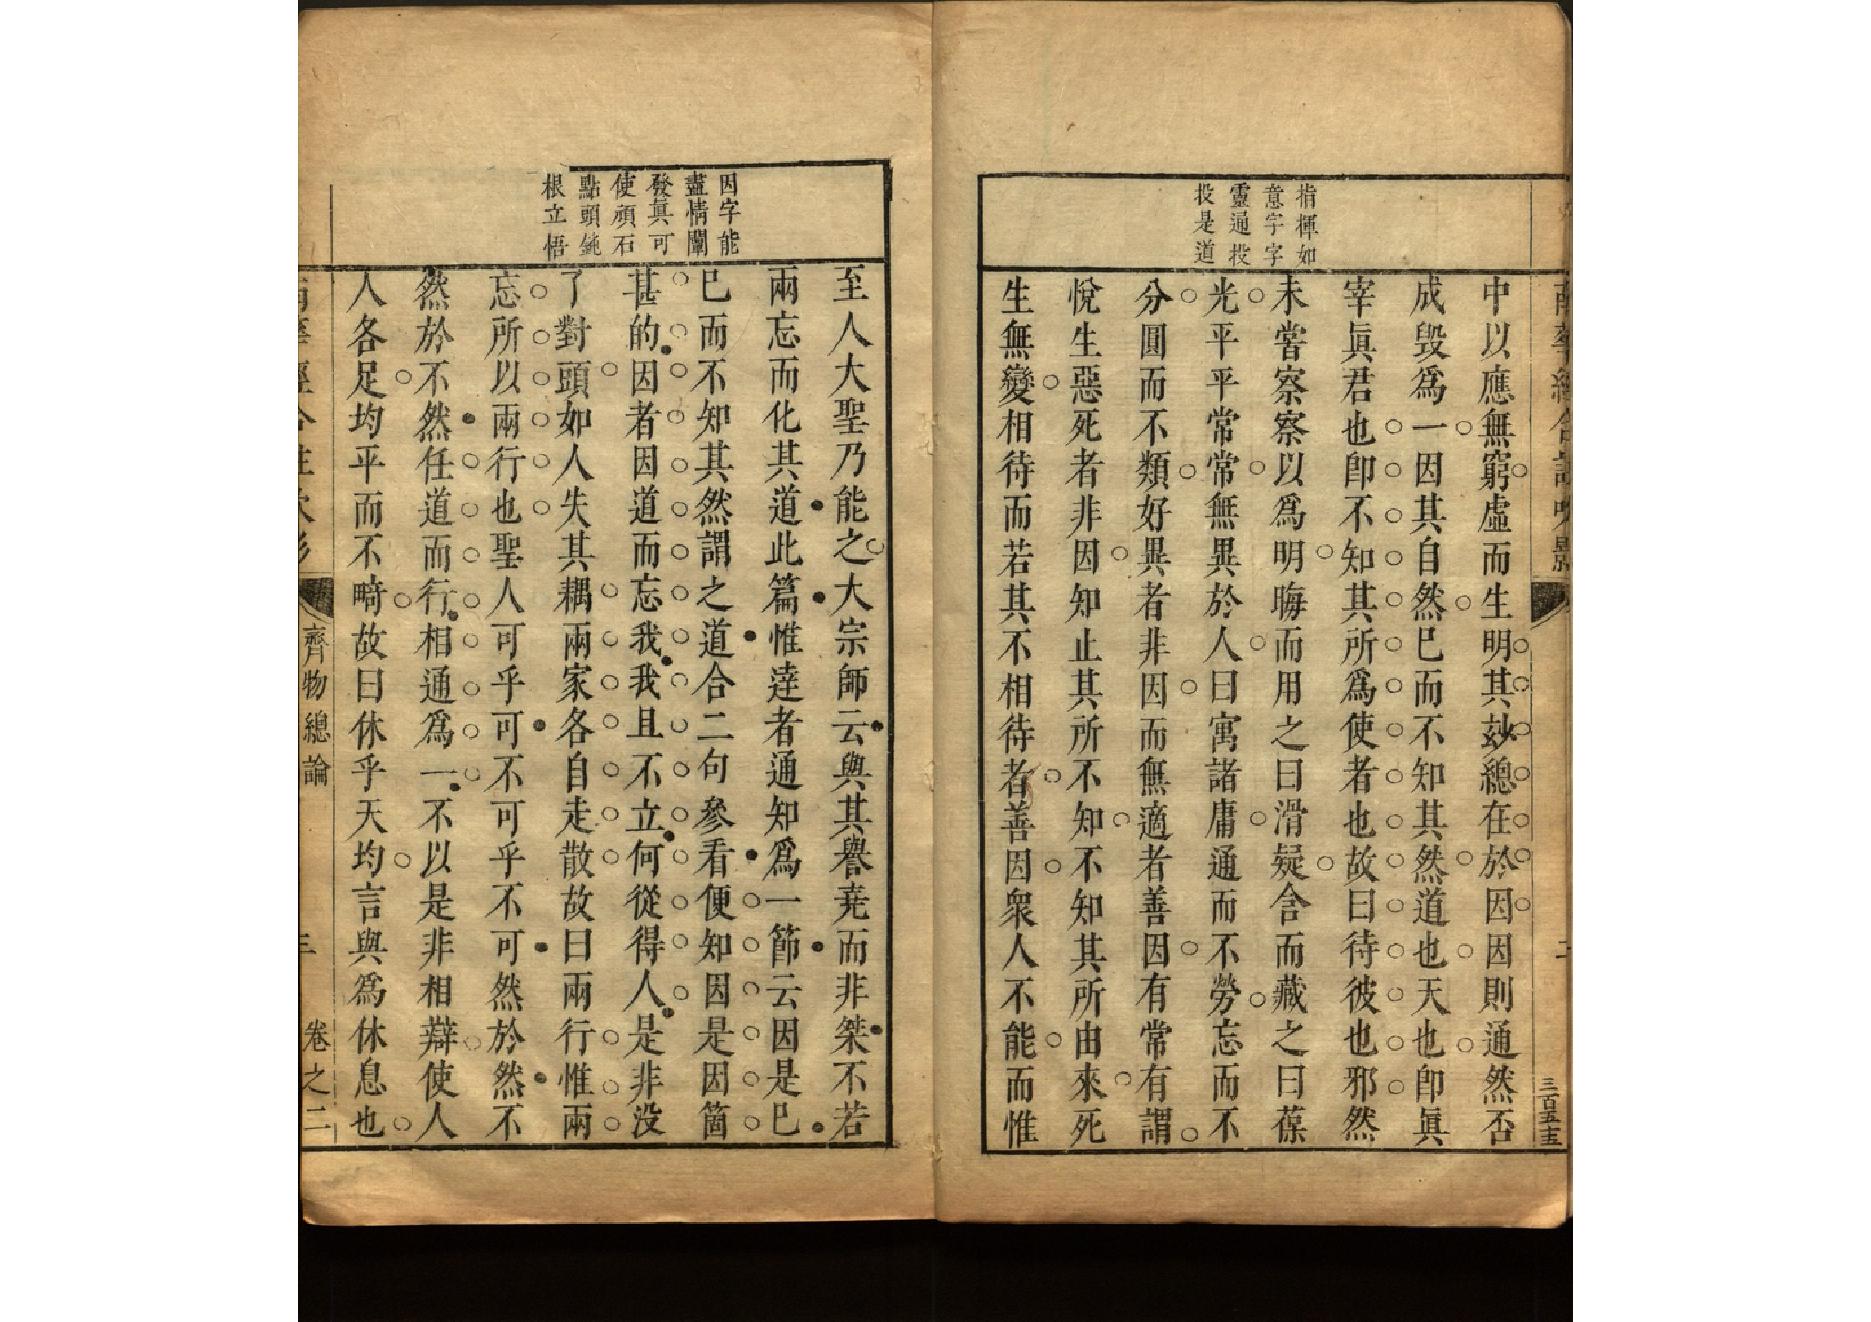 指揮如
意字字
靈通投
投是道
中以應無窮虛而生明其玅總在於因因則通然否
成毀爲一因其自然已而不知其然道也天也卽眞
宰眞君也卽不知其所爲使者也故曰待彼也邪然
未嘗察察以爲明晦而用之曰滑疑含而藏之曰葆
光平平常常無異於人曰寓諸庸通而不勞忘而不
分圓而不類好異者非因而無適者善因有常有謂
悅生惡死者非因知止其所不知不知其所由來死
生無變相待而若其不相待者善因衆人不能而惟
三百五十三
因字能
盡情闡
發眞可
使頑石
點頭鈍
根立悟
至人大聖乃能之大宗師云與其譽堯而非桀不若
兩忘而化其道此篇惟達者通知爲一節云因是已
已而不知其然謂之道合二句參看便知因是因箇
甚的因者因道而忘我我且不立何從得人是非没
了對頭如人失其耦兩家各自走散故曰兩行惟兩
忘所以兩行也聖人可乎可不可乎不可然於然不
然於不然任道而行相通爲一不以是非相辯使人
人各足均平而不畸故曰休乎天均言與爲休息也
齊物總論
三
卷之二